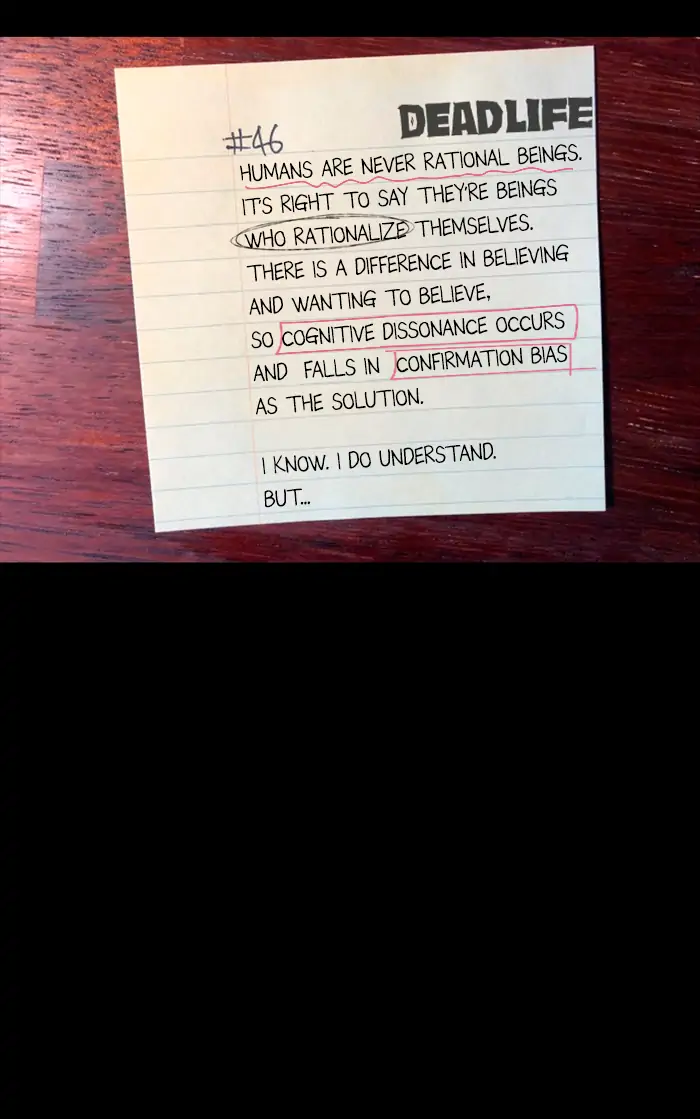 DEADLIFE
#46
HUMANS ARE NEVER RATIONAL BEINGS.
IT'S RIGHT TO SAY THEY'RE BEINGS
WHO RATIONALIZE THEMSELVES.
THERE IS A DIFFERENCE IN BELIEVING
AND WANTING TO BELIEVE,
SO COGNITIVE DISSONANCE OCCURS
AND FALLS IN CONFIRMATION BIAS
AS THE SOLUTION.
I KNOW. I DO UNDERSTAND.
BUT...